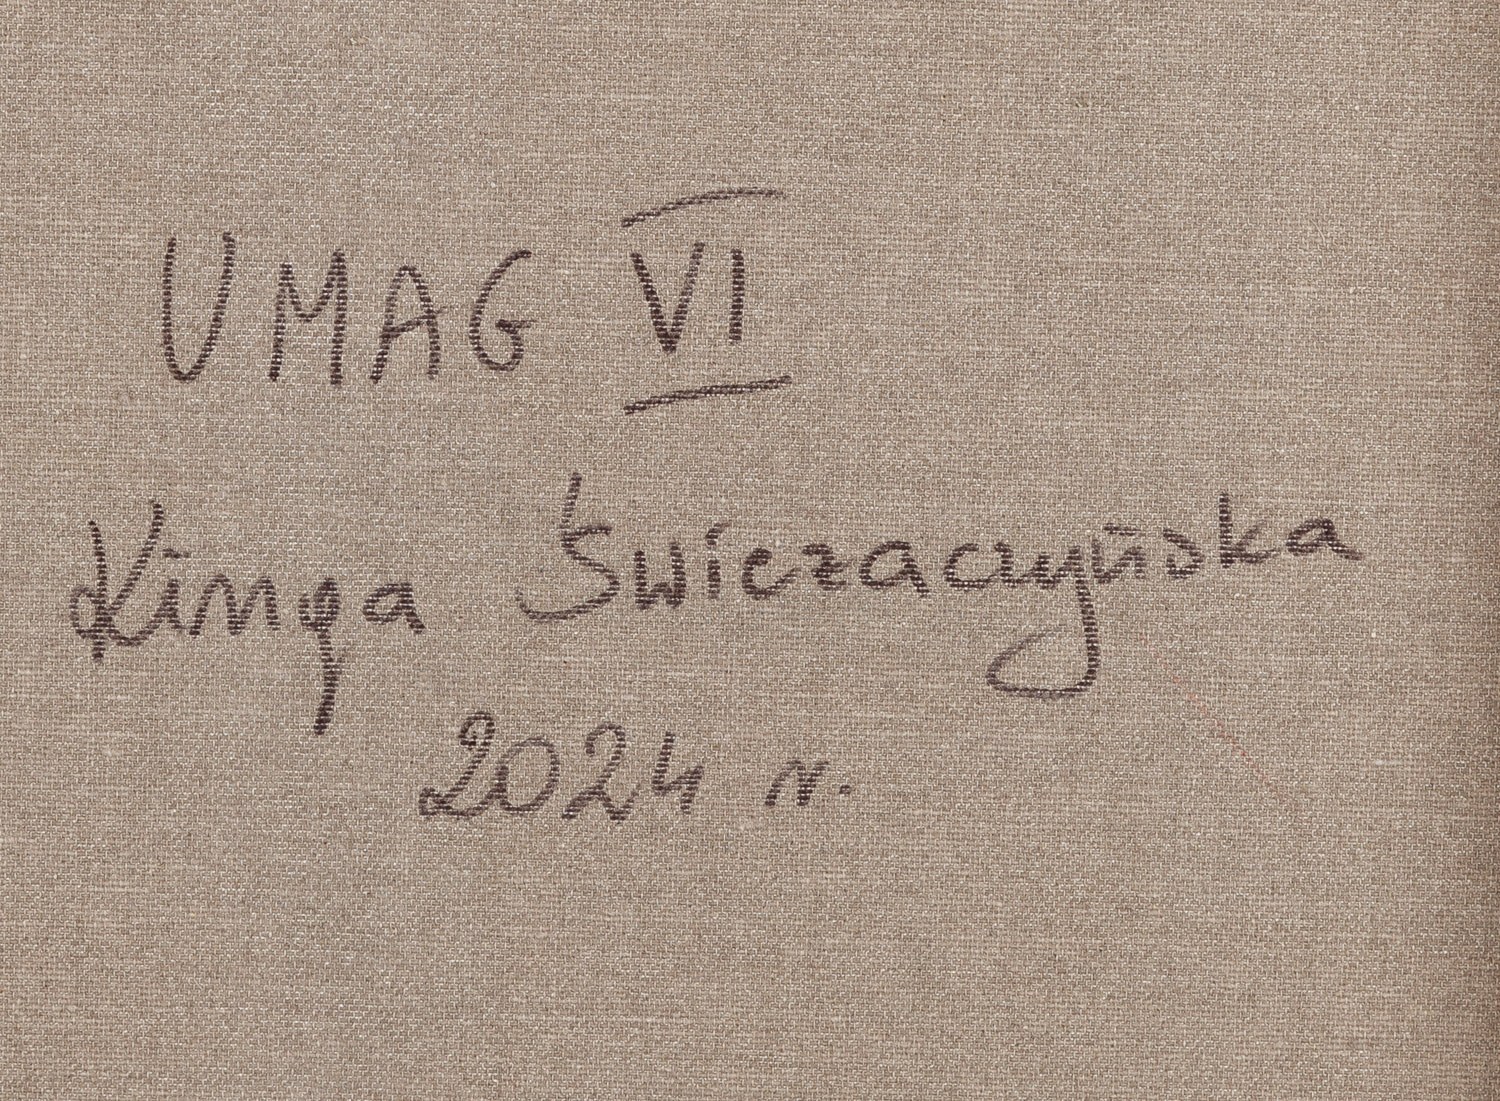 UMAG VI
Kinga Świezaczyńska
2024 r.